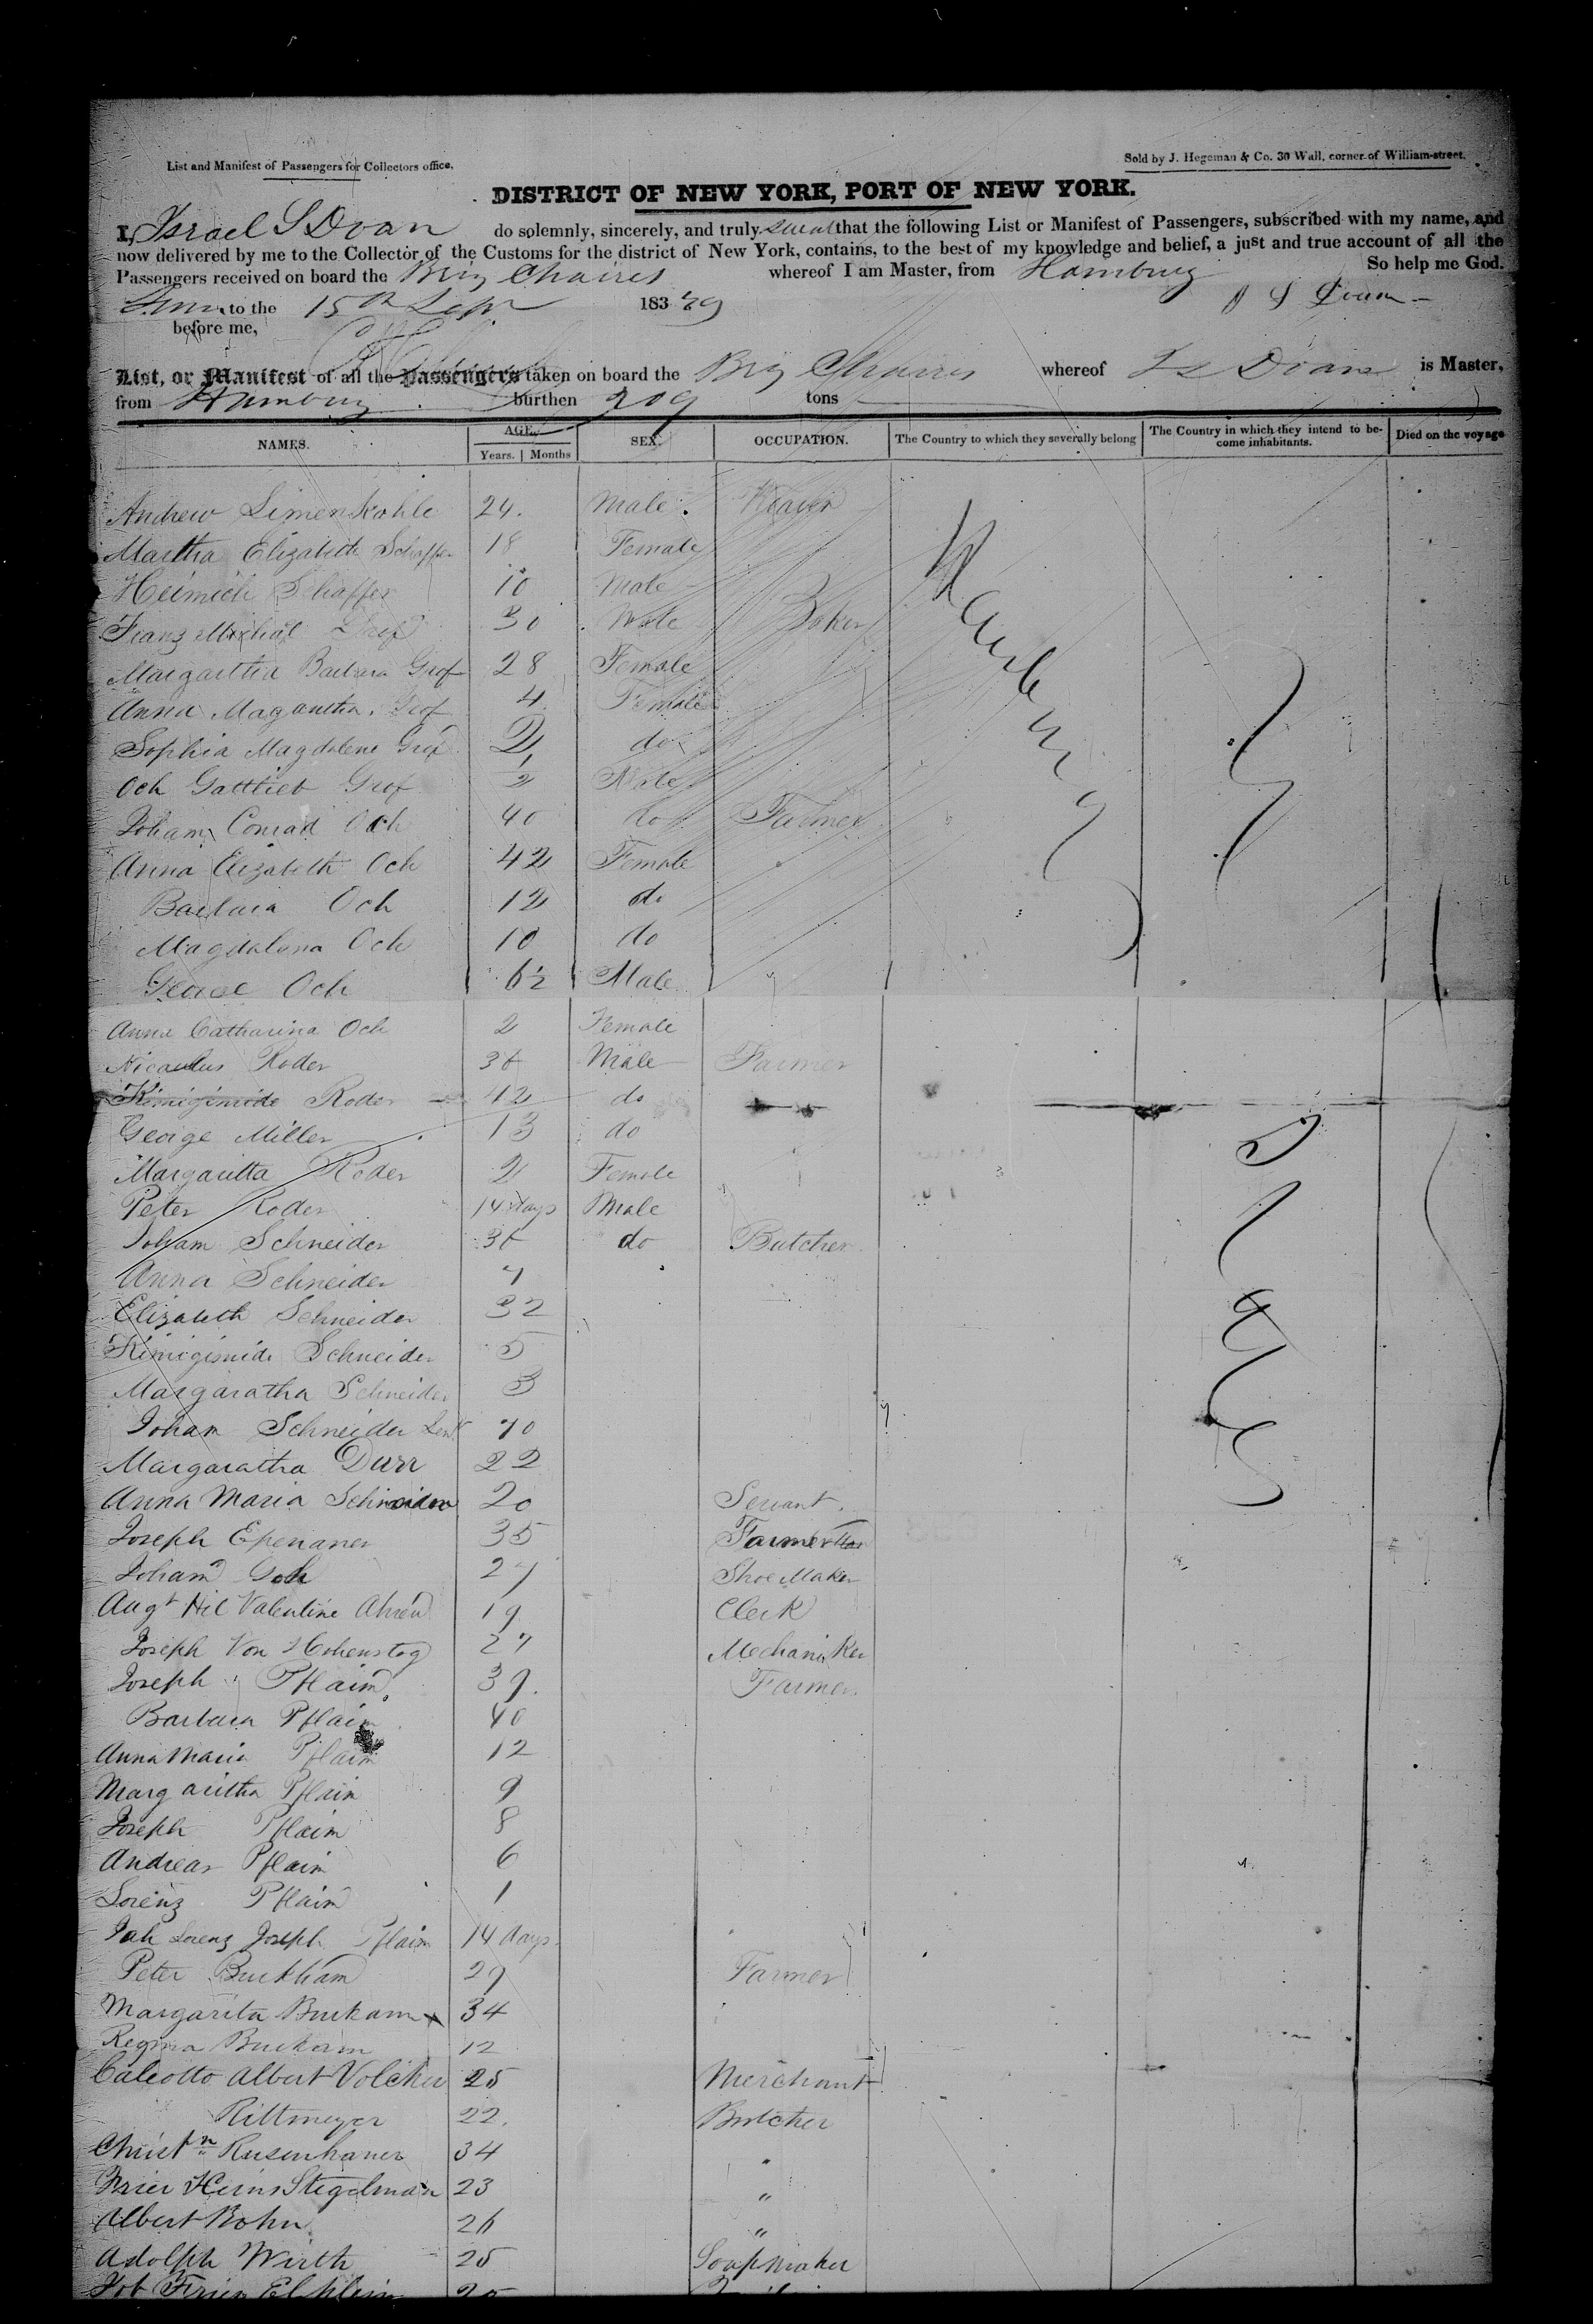 List and Manifest of Passengers for Collectors office.
Sold by J. Hegeman & Co. 30 Wall, corner of William-street.
DISTRICT OF NEW YORK, PORT OF NEW YORK.
I, Israel S Doan do solemnly, sincerely, and truly swear that the following List or Manifest of Passengers, subscribed with my name, and
now delivered by me to the Collector of the Customs for the district of New York, contains, to the best of my knowledge and belief, a just and true account of all the
Passengers received on board the Brig Chaires whereof I am Master, from Hamburg So help me God.
to the 15th Sepr 183 39 I S Doan
before me,
List, or Manifest of all the Passengers taken on board the Brig Chaires whereof I S Doane is Master,
from Hamburg burthen 209 tons
NAMES. AGE. SEX. OCCUPATION. The Country to which they severally belong The Country in which they intend to become inhabitants. Died on the voyage
Years. Months
Andrew 24. Male
Martha Elizabeth Schaffer 18 Female
Heinrich Schaffer 10 Male
Franz Michal Grof 30 Male Baker
Margaritha Barbara Grof 28 Female
Anna Magaretha Grof 4 Female
Sophia Magdalene Grof 2 do
Och Gottlieb Grof Male
Joham Conrad Och 40 do Farmer
Anna Elizabeth Och 42 Female
Barbara Och 12 do
Magdalena Och 10 do
George Och 6½ Male
Anna Catharina Och 2 Female
Nicaulus Roder 36 Male Farmer
Roder 42 do
George Miller 13 do
Margaritta Roder 2 Female
Peter Roder 14 days Male
Joham Schneider 36 do Butcher
Anna Schneider 7
Elizabeth Schneider 32
Schneider 5
Margaratha Schneider 3
Joham Schneider 70
Margaratha Durr 22
Anna Maria Schneider 20 Servant
Joseph Epenaner 35 Farmer
Joham 27 Shoe Maker
Augt Valentine Ahrend 19 Clerk
Joseph Von 27 Mechaniker
Joseph Pflaim 39. Farmer
Barbara Pflaim 40
Anna Maria Pflaim 12
Margaritha Pflaim 9
Joseph Pflaim 8
Andreas Pflaim 6
Lorenz Pflaim 1
Joh Lorenz Joseph Pflaim 14 days
Peter Burkham 29 Farmer
Margarita Burkam 34
Regina Burkam 12
Albert Volcker 25 Merchant
Rittmeyer 22. Butcher
Christn Rusenhauer 34 "
Stegelman 23 "
Albert Bohn 26 "
Adolph Wirth 25 Soapmaker